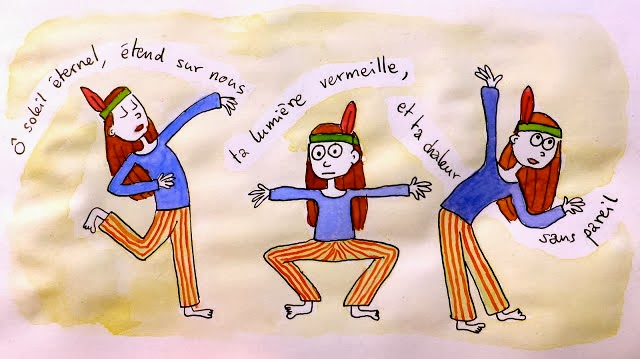 Ô soleil éternel, étend sur nous
ta lumière vermeille,
et ta chaleur
sans pareil